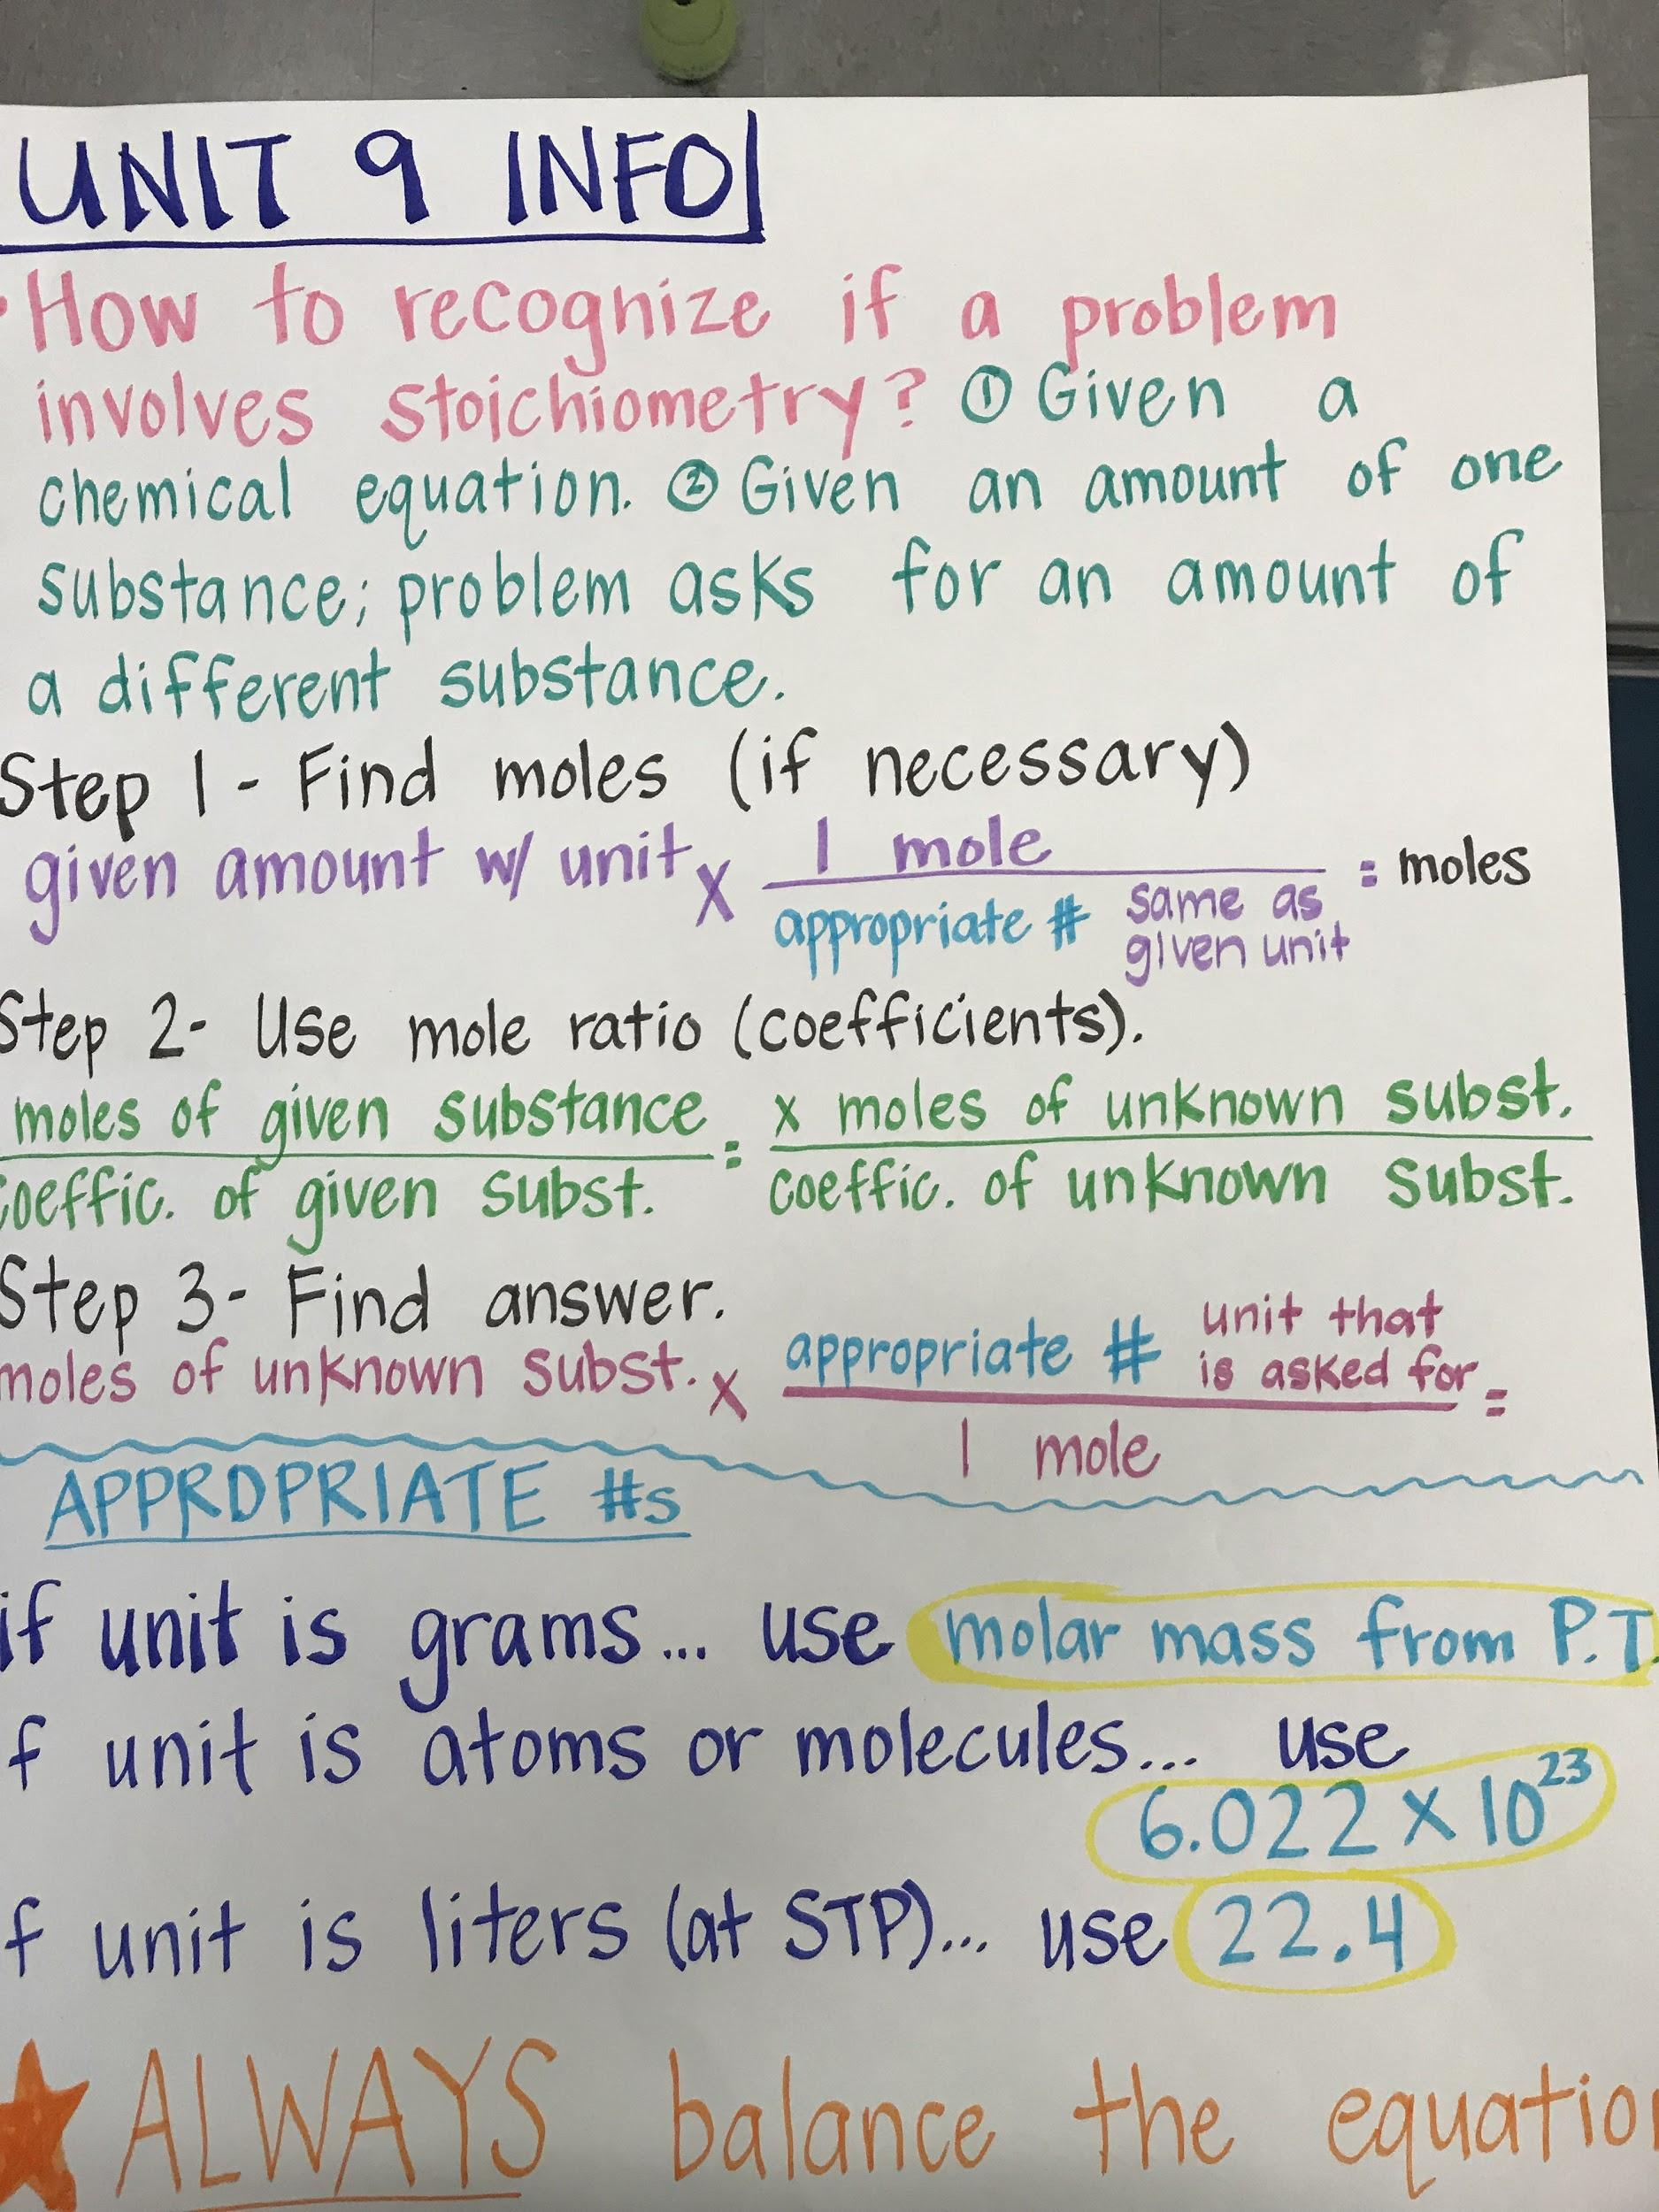 UNIT 9 INFO
How to recognize if a problem
involves stoichiometry? ① Given a
chemical equation. ② Given an amount of one
substance; problem asks for an amount of
a different substance.
Step 1 - Find moles (if necessary)
given amount w/ unit x 1 mole / appropriate # same as given unit = moles
Step 2- Use mole ratio (coefficients).
moles of given substance = x moles of unknown subst.
coeffic. of given subst. coeffic. of unknown subst.
Step 3- Find answer.
moles of unknown subst. x appropriate # unit that is asked for =
1 mole
APPROPRIATE #s
if unit is grams... use molar mass from P.T.
f unit is atoms or molecules... use
6.022 x 10²³
f unit is liters (at STP)... use 22.4
ALWAYS balance the equation